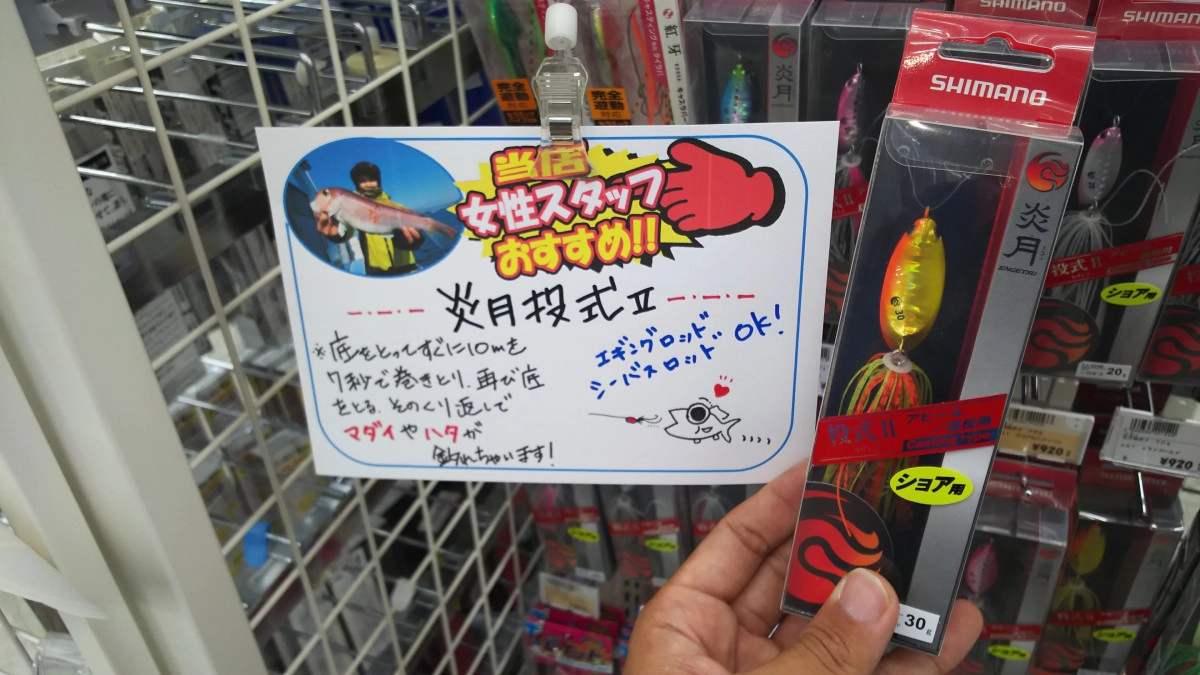 当店
女性スタッフ
おすすめ!!
炎月投式Ⅱ
※底をとってすぐに10mを
7秒で巻きとり、再び底
をとる。そのくり返しで
マダイやハタが
釣れちゃいます!
エギングロッド
シーバスロッド OK!
SHIMANO
炎月
ENGETSU
30
アピール
投式Ⅱ
Casting Type
ショア用
30g
完全
遊動
対応
完全
遊動
対応
紅牙
炎月
SHIMANO
SHIMANO
投式Ⅱ
ショア用
20g
¥920
¥920